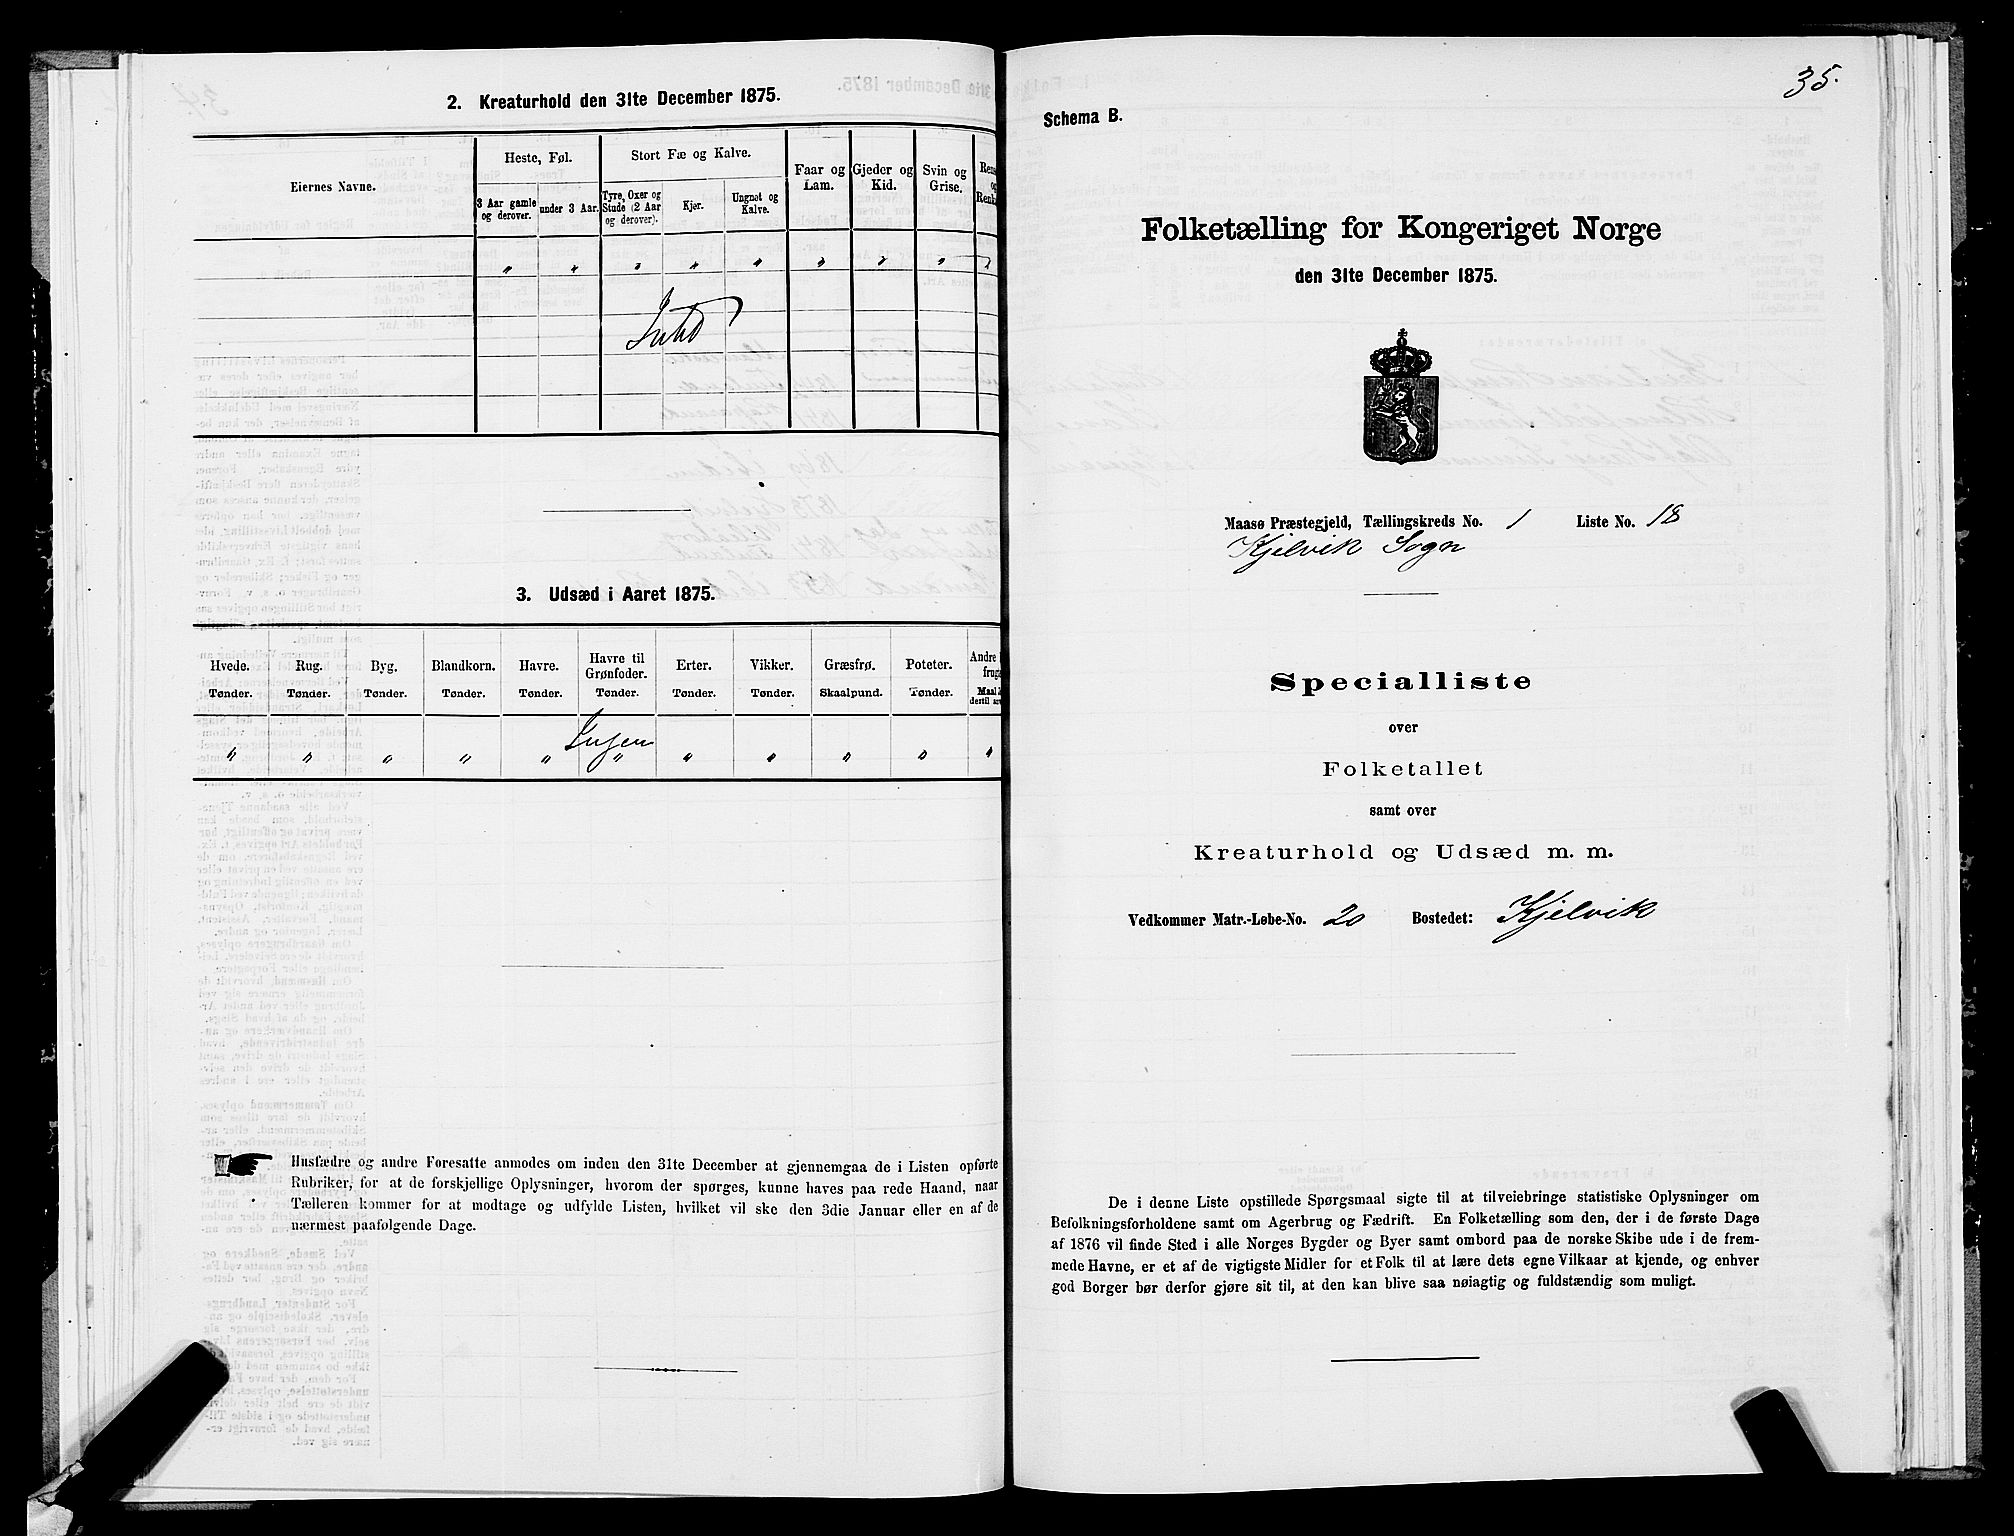 2. Kreaturhold den 31te December 1875.
Eiernes Navne.
Heste, Føl.
3 Aar gamle og derover.
under 3 Aar.
Stort Fæ og Kalve.
Tyre, Oxer og Stude (2 Aar og derover).
Kjør.
Ungnøt og Kalve.
Faar og Lam.
Gjeder og Kid.
Svin og Grise.
" " " " " " " " "
3. Udsæd i Aaret 1875.
Hvede. Rug. Byg. Blandkorn. Havre. Havre til Grønfoder. Erter. Vikker. Græsfrø. Poteter. Andre
Tønder. Tønder. Tønder. Tønder. Tønder. Tønder. Tønder. Tønder. Skaalpund. Tønder. Maal
Ingen
" " " " " " " " " " "
Husfædre og andre Foresatte anmodes om inden den 31te December at gjennemgaa de i Listen opførte
Rubriker, for at de forskjellige Oplysninger, hvorom der spørges, kunne haves paa rede Haand, naar
Tælleren kommer for at modtage og udfylde Listen, hvilket vil ske den 3die Januar eller en af de
nærmest paafølgende Dage.
35.
Schema B.
Folketælling for Kongeriget Norge
den 31te December 1875.
Maasø Præstegjeld, Tællingskreds No. 1 Liste No. 18
Kjelvik Sogn
Specialliste
over
Folketallet
samt over
Kreaturhold og Udsæd m. m.
Vedkommer Matr.-Løbe-No. 20 Bostedet: Kjelvik
De i denne Liste opstillede Spørgsmaal sigte til at tilveiebringe statistiske Oplysninger om
Befolkningsforholdene samt om Agerbrug og Fædrift. En Folketælling som den, der i de første Dage
af 1876 vil finde Sted i alle Norges Bygder og Byer samt ombord paa de norske Skibe ude i de frem-
mede Havne, er et af de vigtigste Midler for et Folk til at lære dets egne Vilkaar at kjende, og enhver
god Borger bør derfor gjøre sit til, at den kan blive saa nøiagtig og fuldstændig som muligt.